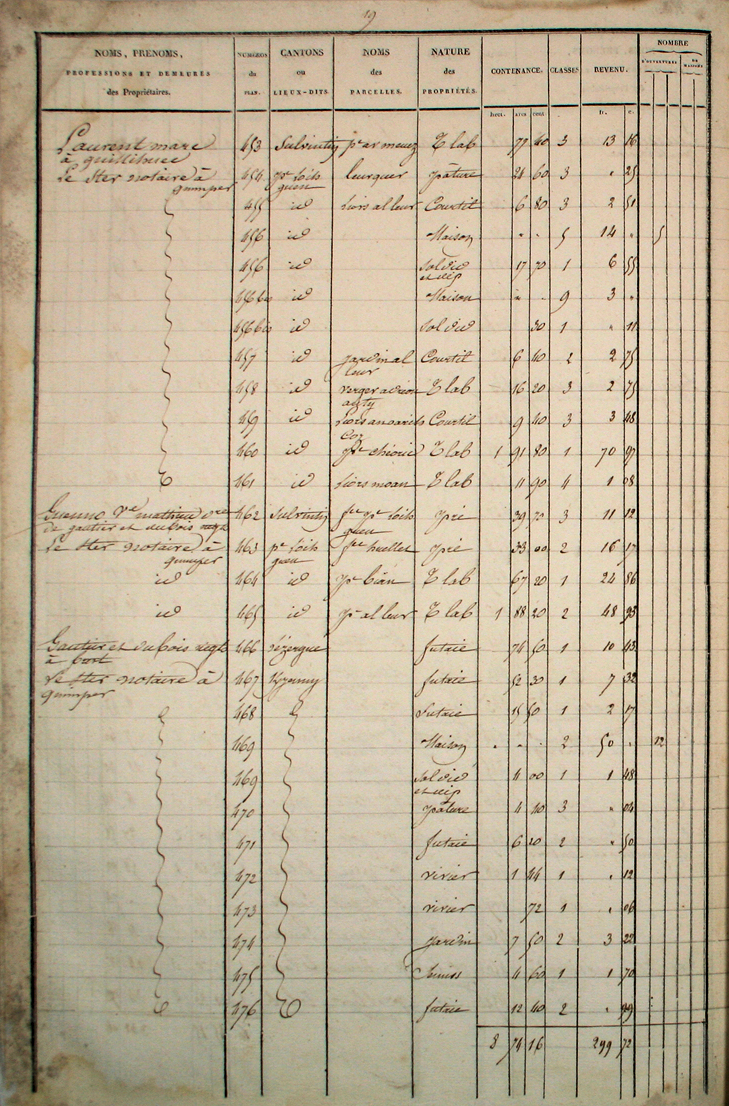 19
NOMS, PRENOMS, PROFESSIONS ET DEMEURES des Propriétaires. NUMÉROS du PLAN. CANTONS ou LIEUX-DITS. NOMS des PARCELLES. NATURE des PROPRIÉTÉS. CONTENANCE. CLASSES. REVENU. NOMBRE D'OUVERTURES DE MAISONS
hect. ares cent. fr. c.
Laurent marc 453 Sulvintin pr ar meneg T lab 77 40 3 13 16
à quillihuec
Le Ster notaire à 454 pr loils leurguer pâture 24 60 3 " 25
quimper guen
455 id liors al leur Courtil 6 80 3 2 51
456 id Maison " " 5 14 " 5
456 id sol dud 17 70 1 6 55
et cep
456 bis id Maison " " 9 3 "
456 bis id sol dud 30 1 " 11
457 id jardin al Courtil 6 40 2 2 75
leur
458 id verger T lab 16 20 3 2 75
459 id liors Courtil 9 40 3 3 48
460 id T lab 1 91 80 1 70 97
461 id liors moan T lab 11 90 4 1 08
Guenno Ve mathieu 462 Sulvintin pré 39 70 3 11 12
de gautier et dubois negts guen
Le Ster notaire à 463 pr loils huellet pré 33 00 2 16 17
quimper guen
id 464 id pr bian T lab 67 20 1 24 86
id 465 id pr al leur T lab 1 88 20 2 48 93
Gautier et dubois negts 466 futaie 74 50 1 10 43
à
Le Ster notaire à 467 futaie 52 30 1 7 32
quimper
468 futaie 15 50 1 2 17
469 Maison " " " 2 50 " 12
469 sol dud 4 00 1 1 48
et cep
470 pâture 4 10 3 " 04
471 futaie 6 20 2 " 50
472 vivier 1 44 1 " 12
473 vivier 72 1 " 06
474 jardin 7 50 2 3 22
475 4 60 1 1 70
476 futaie 12 40 2 " 99
8 74 16 299 72